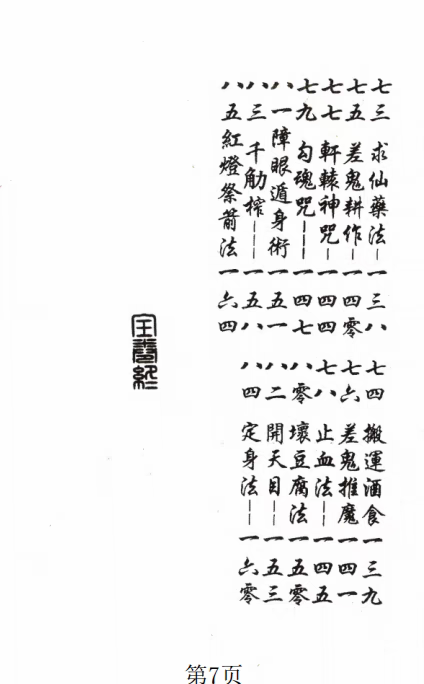 七三、求仙藥法——一三八
七五、差鬼耕作——一四零
七七、軒轅神咒——一四四
七九、勾魂咒——一四七
八一、障眼遁身術一五一
八三、千觔榨——一五八
八五、紅燈祭箭法一六四
七四、搬運酒食一三九
七六、差鬼推魔一四一
七八、止血法——一四五
八零、壞豆腐法一五零
八二、開天目——一五三
八四、定身法——一六零
全書終
第7页